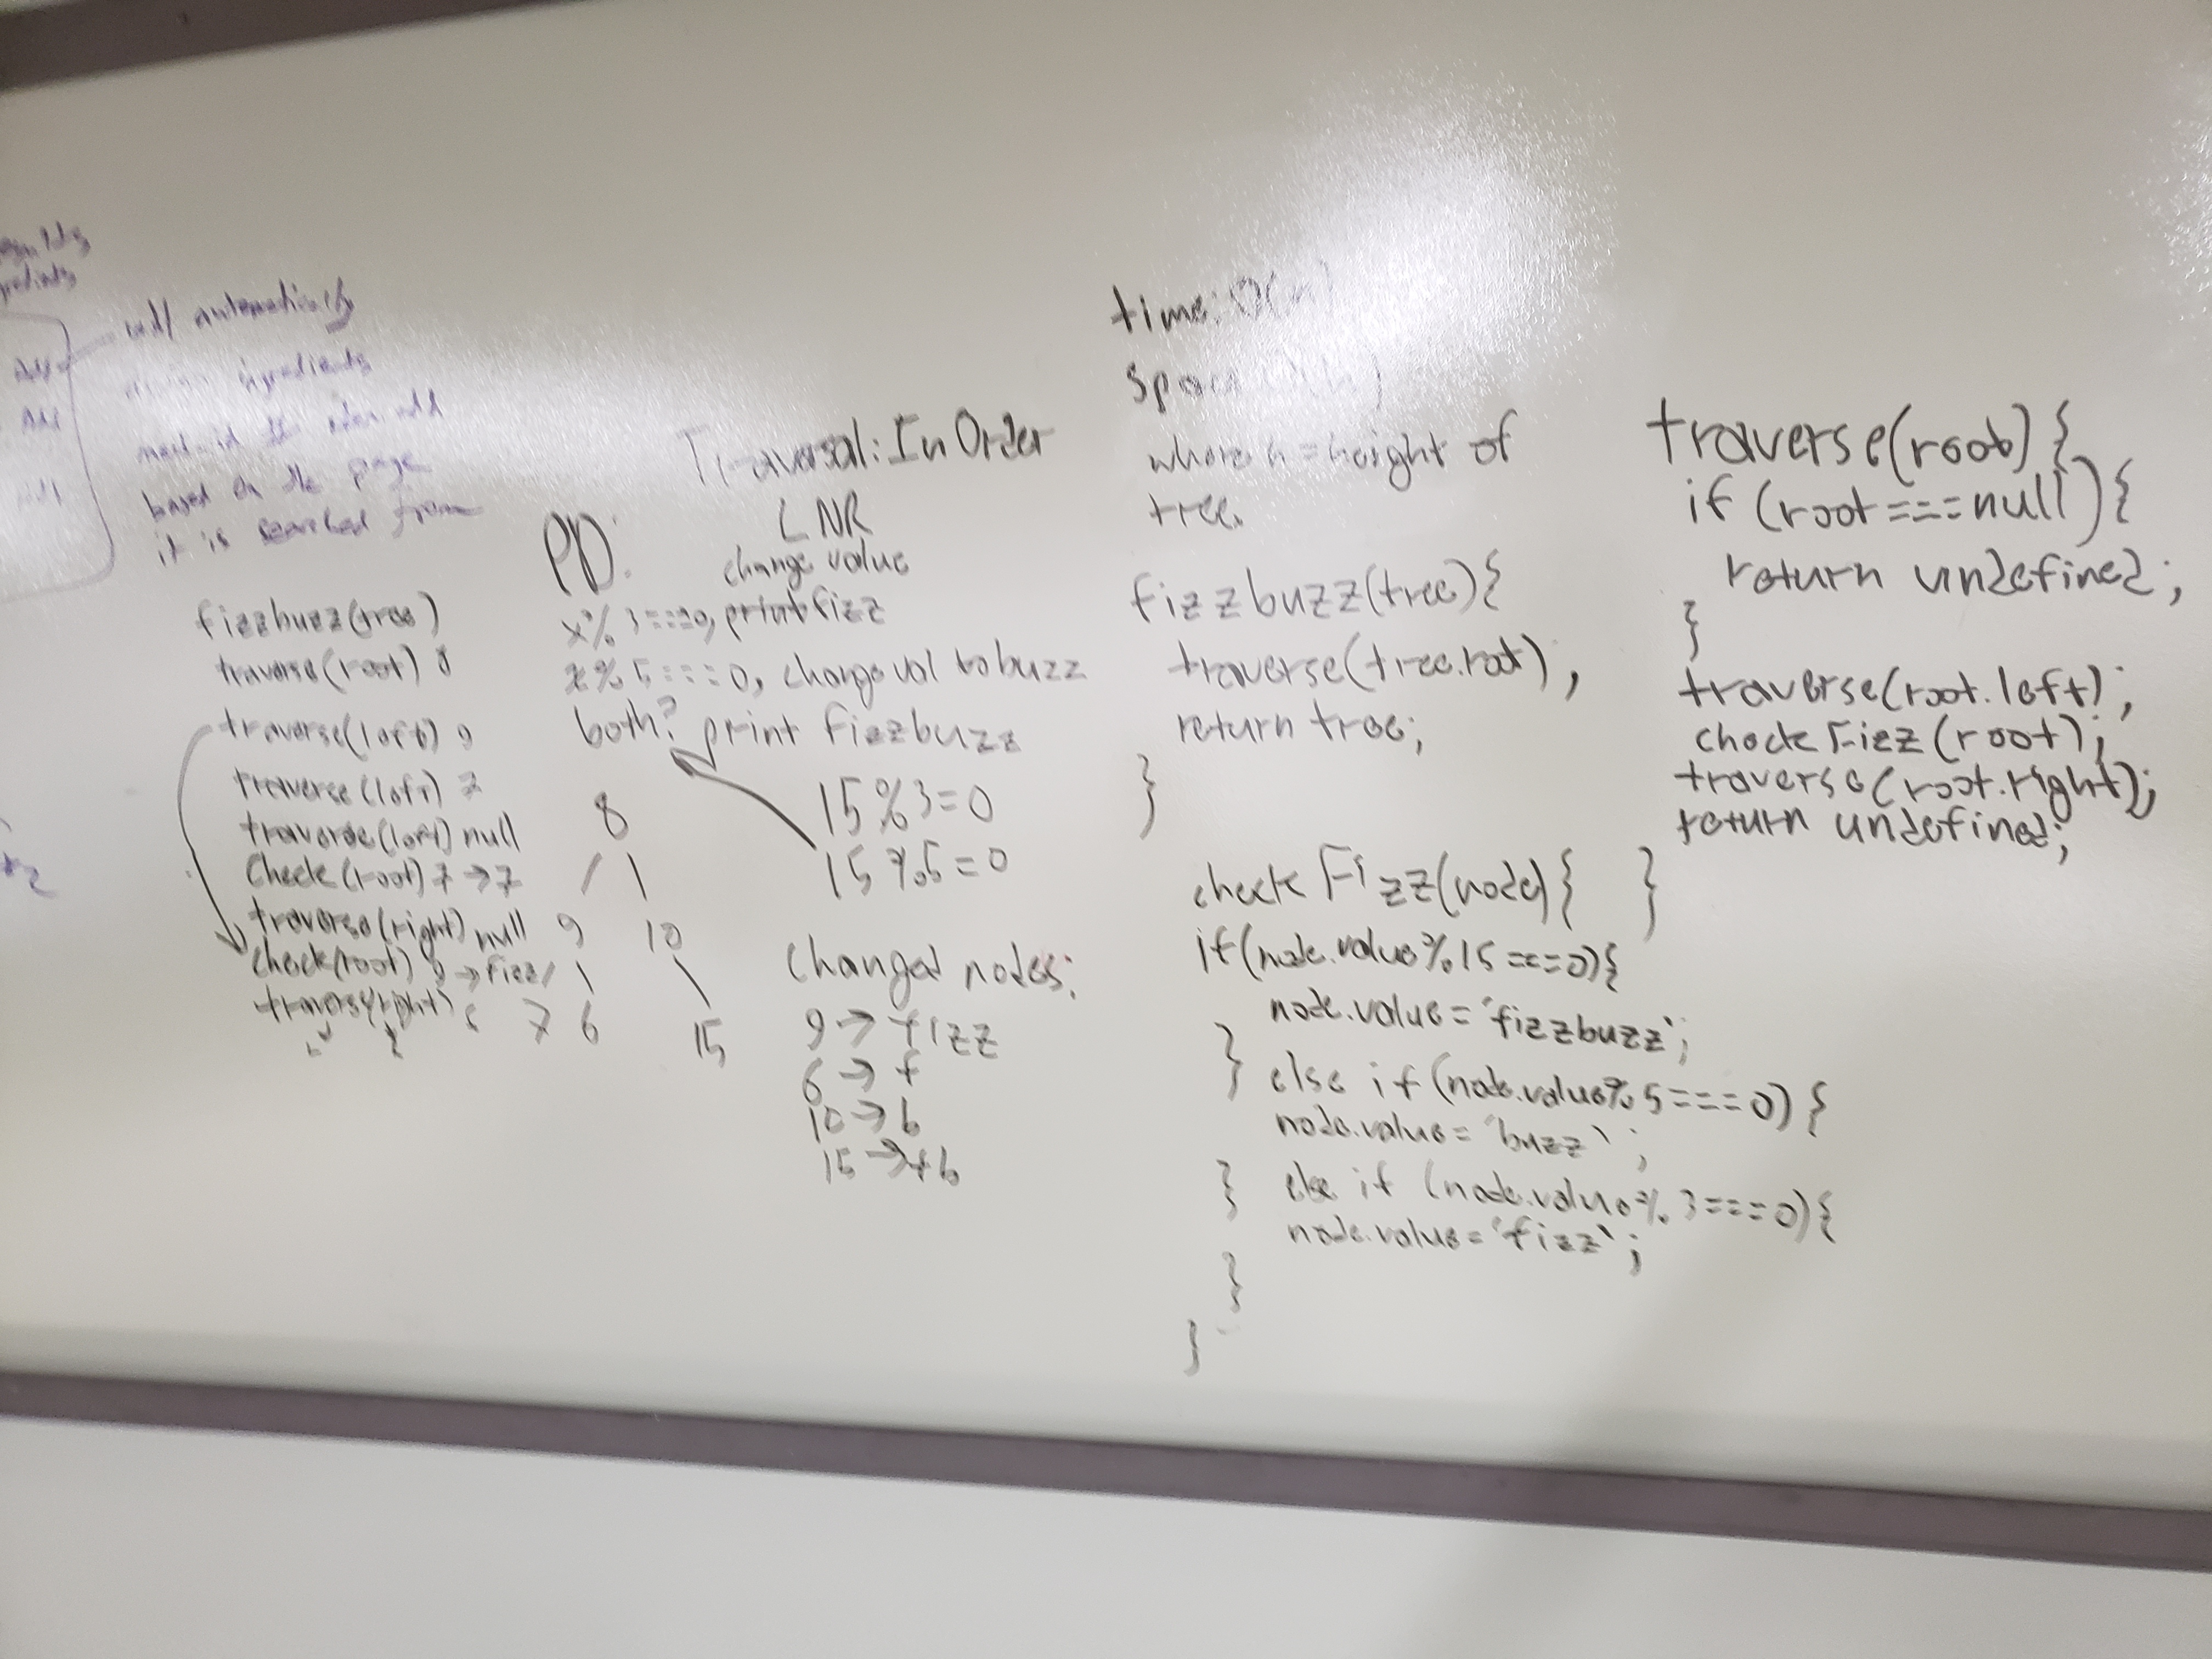 will automatically
ingredients
based on the page
it is searched from
Add
Add
fizzbuzz(tree)
traverse(root) 8
traverse(left) 9
traverse(left) 7
traverse(left) null
Check(root) 7 → 7
traverse(right) null
check(root) 9 → fizz
traverse(right) 6
Traversal: In Order
LNR
PD:
change value
x % 3 === 0, print fizz
x % 5 === 0, change val to buzz
both? print fizzbuzz
15 % 3 = 0
15 % 5 = 0
8
9 10
7 6 15
Changed nodes:
9 → fizz
6 → f
10 → b
15 → fb
time: O(n)
space: O(h)
where h = height of
tree.
fizzbuzz(tree){
traverse(tree.root);
return tree;
}
checkFizz(node){
if(node.value % 15 === 0){
node.value = 'fizzbuzz';
} else if (node.value % 5 === 0) {
node.value = 'buzz';
} else if (node.value % 3 === 0){
node.value = 'fizz';
}
}
traverse(root) {
if (root === null) {
return undefined;
}
traverse(root.left);
checkFizz(root);
traverse(root.right);
return undefined;
}